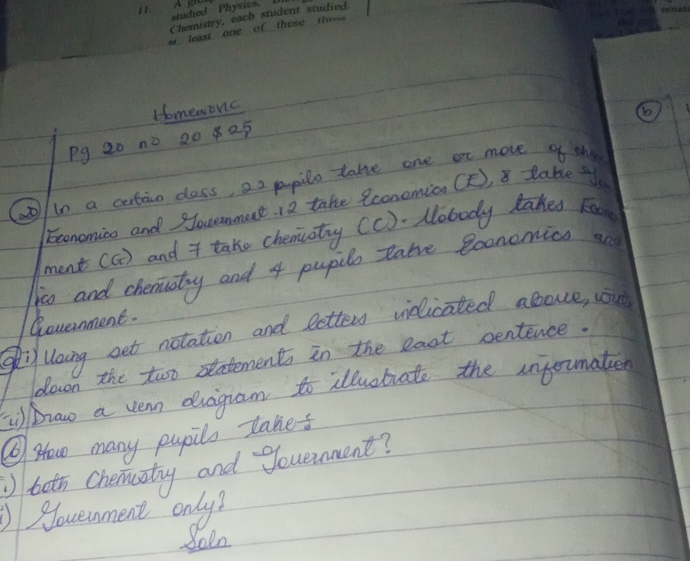 11. A
studied Physics,
Chemistry, each student studied
at least one of these
Homework
Pg 20 no 20 $ 25
(20) In a certain class, 22 pupils take one or more of
Economics and Government. 12 take Economics (E), 8 take
ment (G) and 7 take Chemistry (C). Nobody takes Econo
ics and chemistry and 4 pupils take Economics and
Government.
(a) i) Using set notation and letters indicated above, write
down the two statements in the last sentence.
ii) Draw a venn diagram to illustrate the information
(b) How many pupils take:
i) both Chemistry and Government?
i) Government only?
Soln
(b)